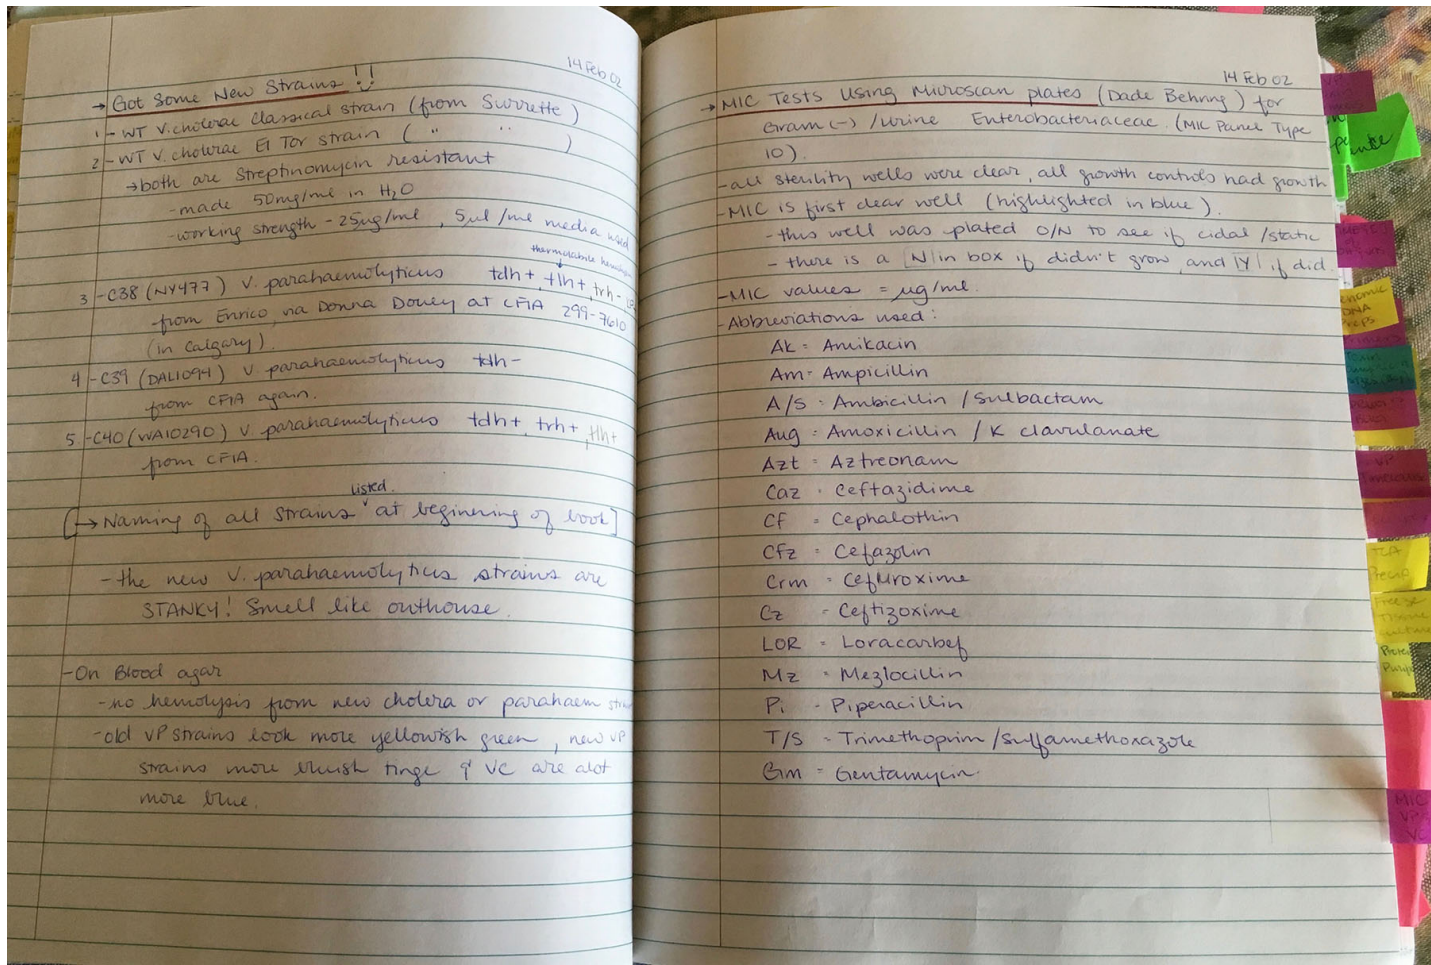 14 Feb 02
→ Got Some New Strains !!
1 - WT V. cholerae Classical strain (from Surrette)
2 - WT V. cholerae El Tor strain ( " " )
→ both are Streptinomycin resistant
- made 50mg/ml in H2O
- working strength - 25µg/ml, 5µl/ml media used
thermolabile hemolysin
3 - C38 (NY477) V. parahaemolyticus tdh+, tlh+, trh-
- from Enrico, via Donna Douey at CFIA 299-7610
(in Calgary).
4 - C39 (DAL1094) V. parahaemolyticus tdh-
from CFIA again.
5 - C40 (WA10290) V. parahaemolyticus tdh+, trh+, tlh+
from CFIA.
listed
[→ Naming of all strains ˅ at beginning of book]
- the new V. parahaemolyticus strains are
STANKY! Smell like outhouse.
- On Blood agar
- no hemolysis from new cholera or parahaem
- old VP strains look more yellowish green, new VP
strains more bluish tinge & VC are alot
more blue.
14 Feb 02
→ MIC Tests Using Microscan plates (Dade Behring) for
Gram (-) /Urine Enterobacteriaceae. (MIC Panel Type
10).
- all sterility wells were clear, all growth controls had growth
- MIC is first clear well (highlighted in blue).
- this well was plated O/N to see if cidal /static
- there is a |N| in box if didn't grow and |Y| if did.
- MIC values = µg/ml.
- Abbreviations used:
Ak = Amikacin
Am = Ampicillin
A/S = Ambicillin / Sulbactam
Aug = Amoxicillin / K clavulanate
Azt = Aztreonam
Caz = Ceftazidime
Cf = Cephalothin
Cfz = Cefazolin
Crm = Cefuroxime
Cz = Ceftizoxime
LOR = Loracarbef
Mz = Mezlocillin
Pi = Piperacillin
T/S = Trimethoprim /Sulfamethoxazole
Gm = Gentamycin
DNA
VP
Timecourse
TCA
Precip
Freeze
Tissue
MIC
VP
VC